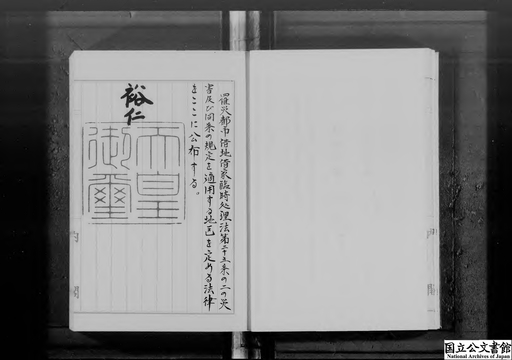 罹災都市借地借家臨時処理法第二十五条の二の災
害及び同条の規定を適用する地区を定める法律
をここに公布する。
裕仁
天皇
御璽
国立公文書館
National Archives of Japan